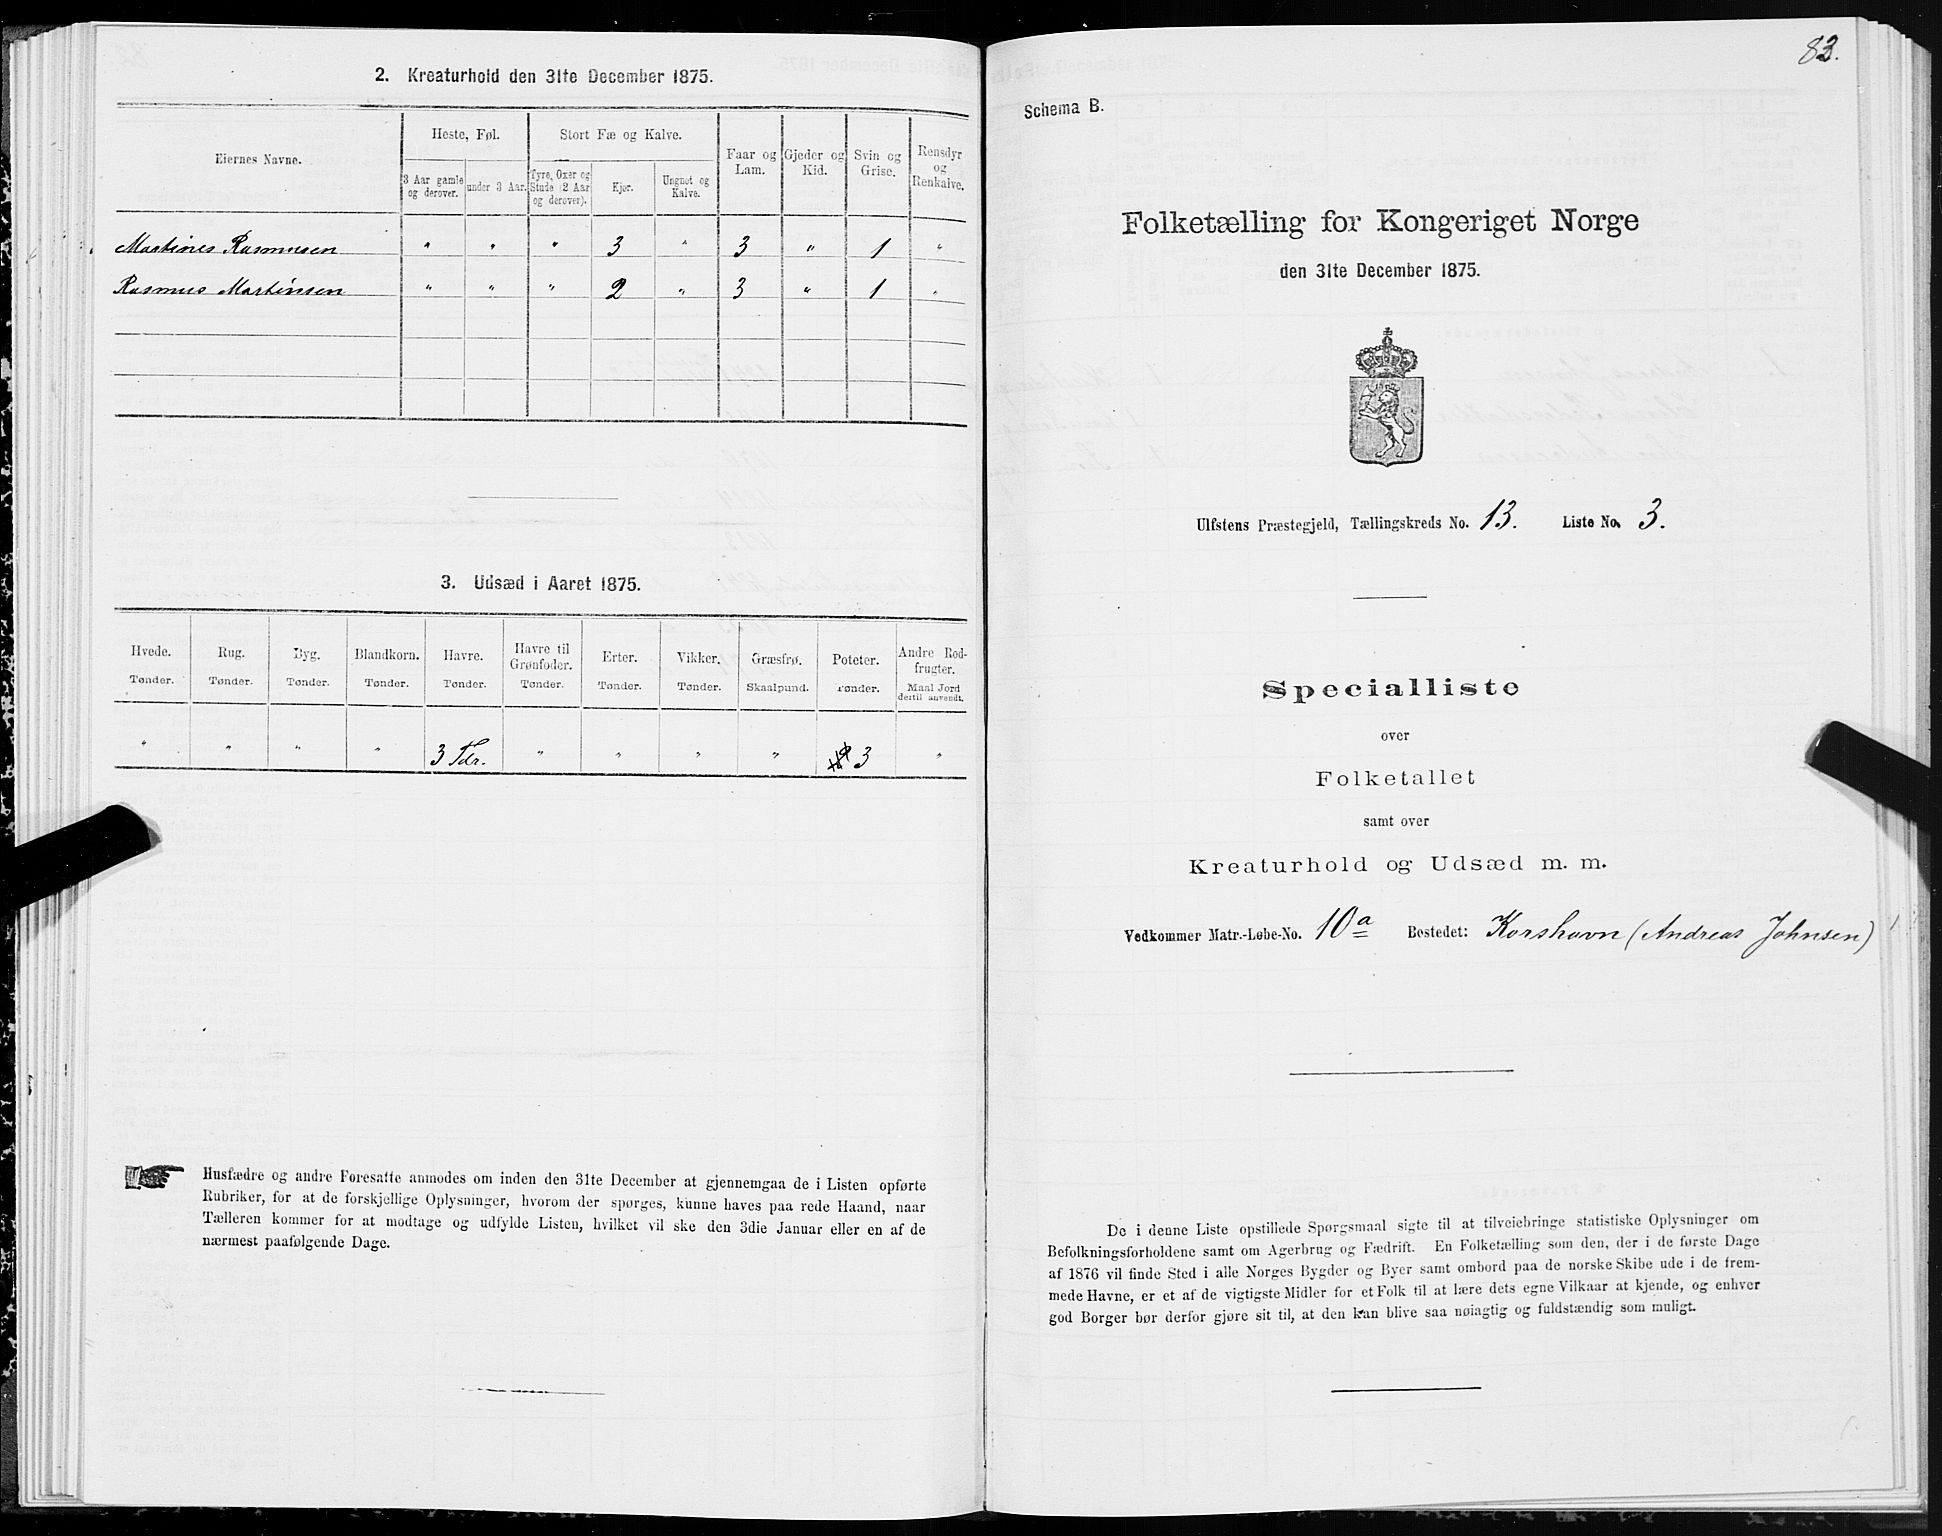 2. Kreaturhold den 31te December 1875.
Eiernes Navne.
Heste, Føl.
Stort Fæ og Kalve.
Faar og Lam.
Gjeder og Kid.
Svin og Grise.
Rensdyr og Renkalve.
3 Aar gamle og derover.
under 3 Aar.
Tyre, Oxer og Stude (2 Aar og derover).
Kjør.
Ungnøt og Kalve.
Martines Rasmusen " " " 3 " 3 " 1 "
Rasmus Martinsen " " " 2 " 3 " 1 "
3. Udsæd i Aaret 1875.
Hvede. Rug. Byg. Blandkorn. Havre. Havre til Grønfoder. Erter. Vikker. Græsfrø. Poteter. Andre Rodfrugter.
Tønder. Tønder. Tønder. Tønder. Tønder. Tønder. Tønder. Tønder. Skaalpund. Tønder. Maal Jord dertil anvendt.
" " " " 3 Tdr. " " " " 3 "
Husfædre og andre Foresatte anmodes om inden den 31te December at gjennemgaa de i Listen opførte
Rubriker, for at de forskjellige Oplysninger, hvorom der spørges, kunne haves paa rede Haand, naar
Tælleren kommer for at modtage og udfylde Listen, hvilket vil ske den 3die Januar eller en af de
nærmest paafølgende Dage.
83.
Schema B.
Folketælling for Kongeriget Norge
den 31te December 1875.
Ulfstens Præstegjeld, Tællingskreds No. 13. Liste No. 3.
Specialliste
over
Folketallet
samt over
Kreaturhold og Udsæd m. m.
Vedkommer Matr.-Løbe-No. 10a Bostedet: Korshavn (Andreas Johnsen)
De i denne Liste opstillede Spørgsmaal sigte til at tilveiebringe statistiske Oplysninger om
Befolkningsforholdene samt om Agerbrug og Fædrift. En Folketælling som den, der i de første Dage
af 1876 vil finde Sted i alle Norges Bygder og Byer samt ombord paa de norske Skibe ude i de frem-
mede Havne, er et af de vigtigste Midler for et Folk til at lære dets egne Vilkaar at kjende, og enhver
god Borger bør derfor gjøre sit til, at den kan blive saa nøiagtig og fuldstændig som muligt.